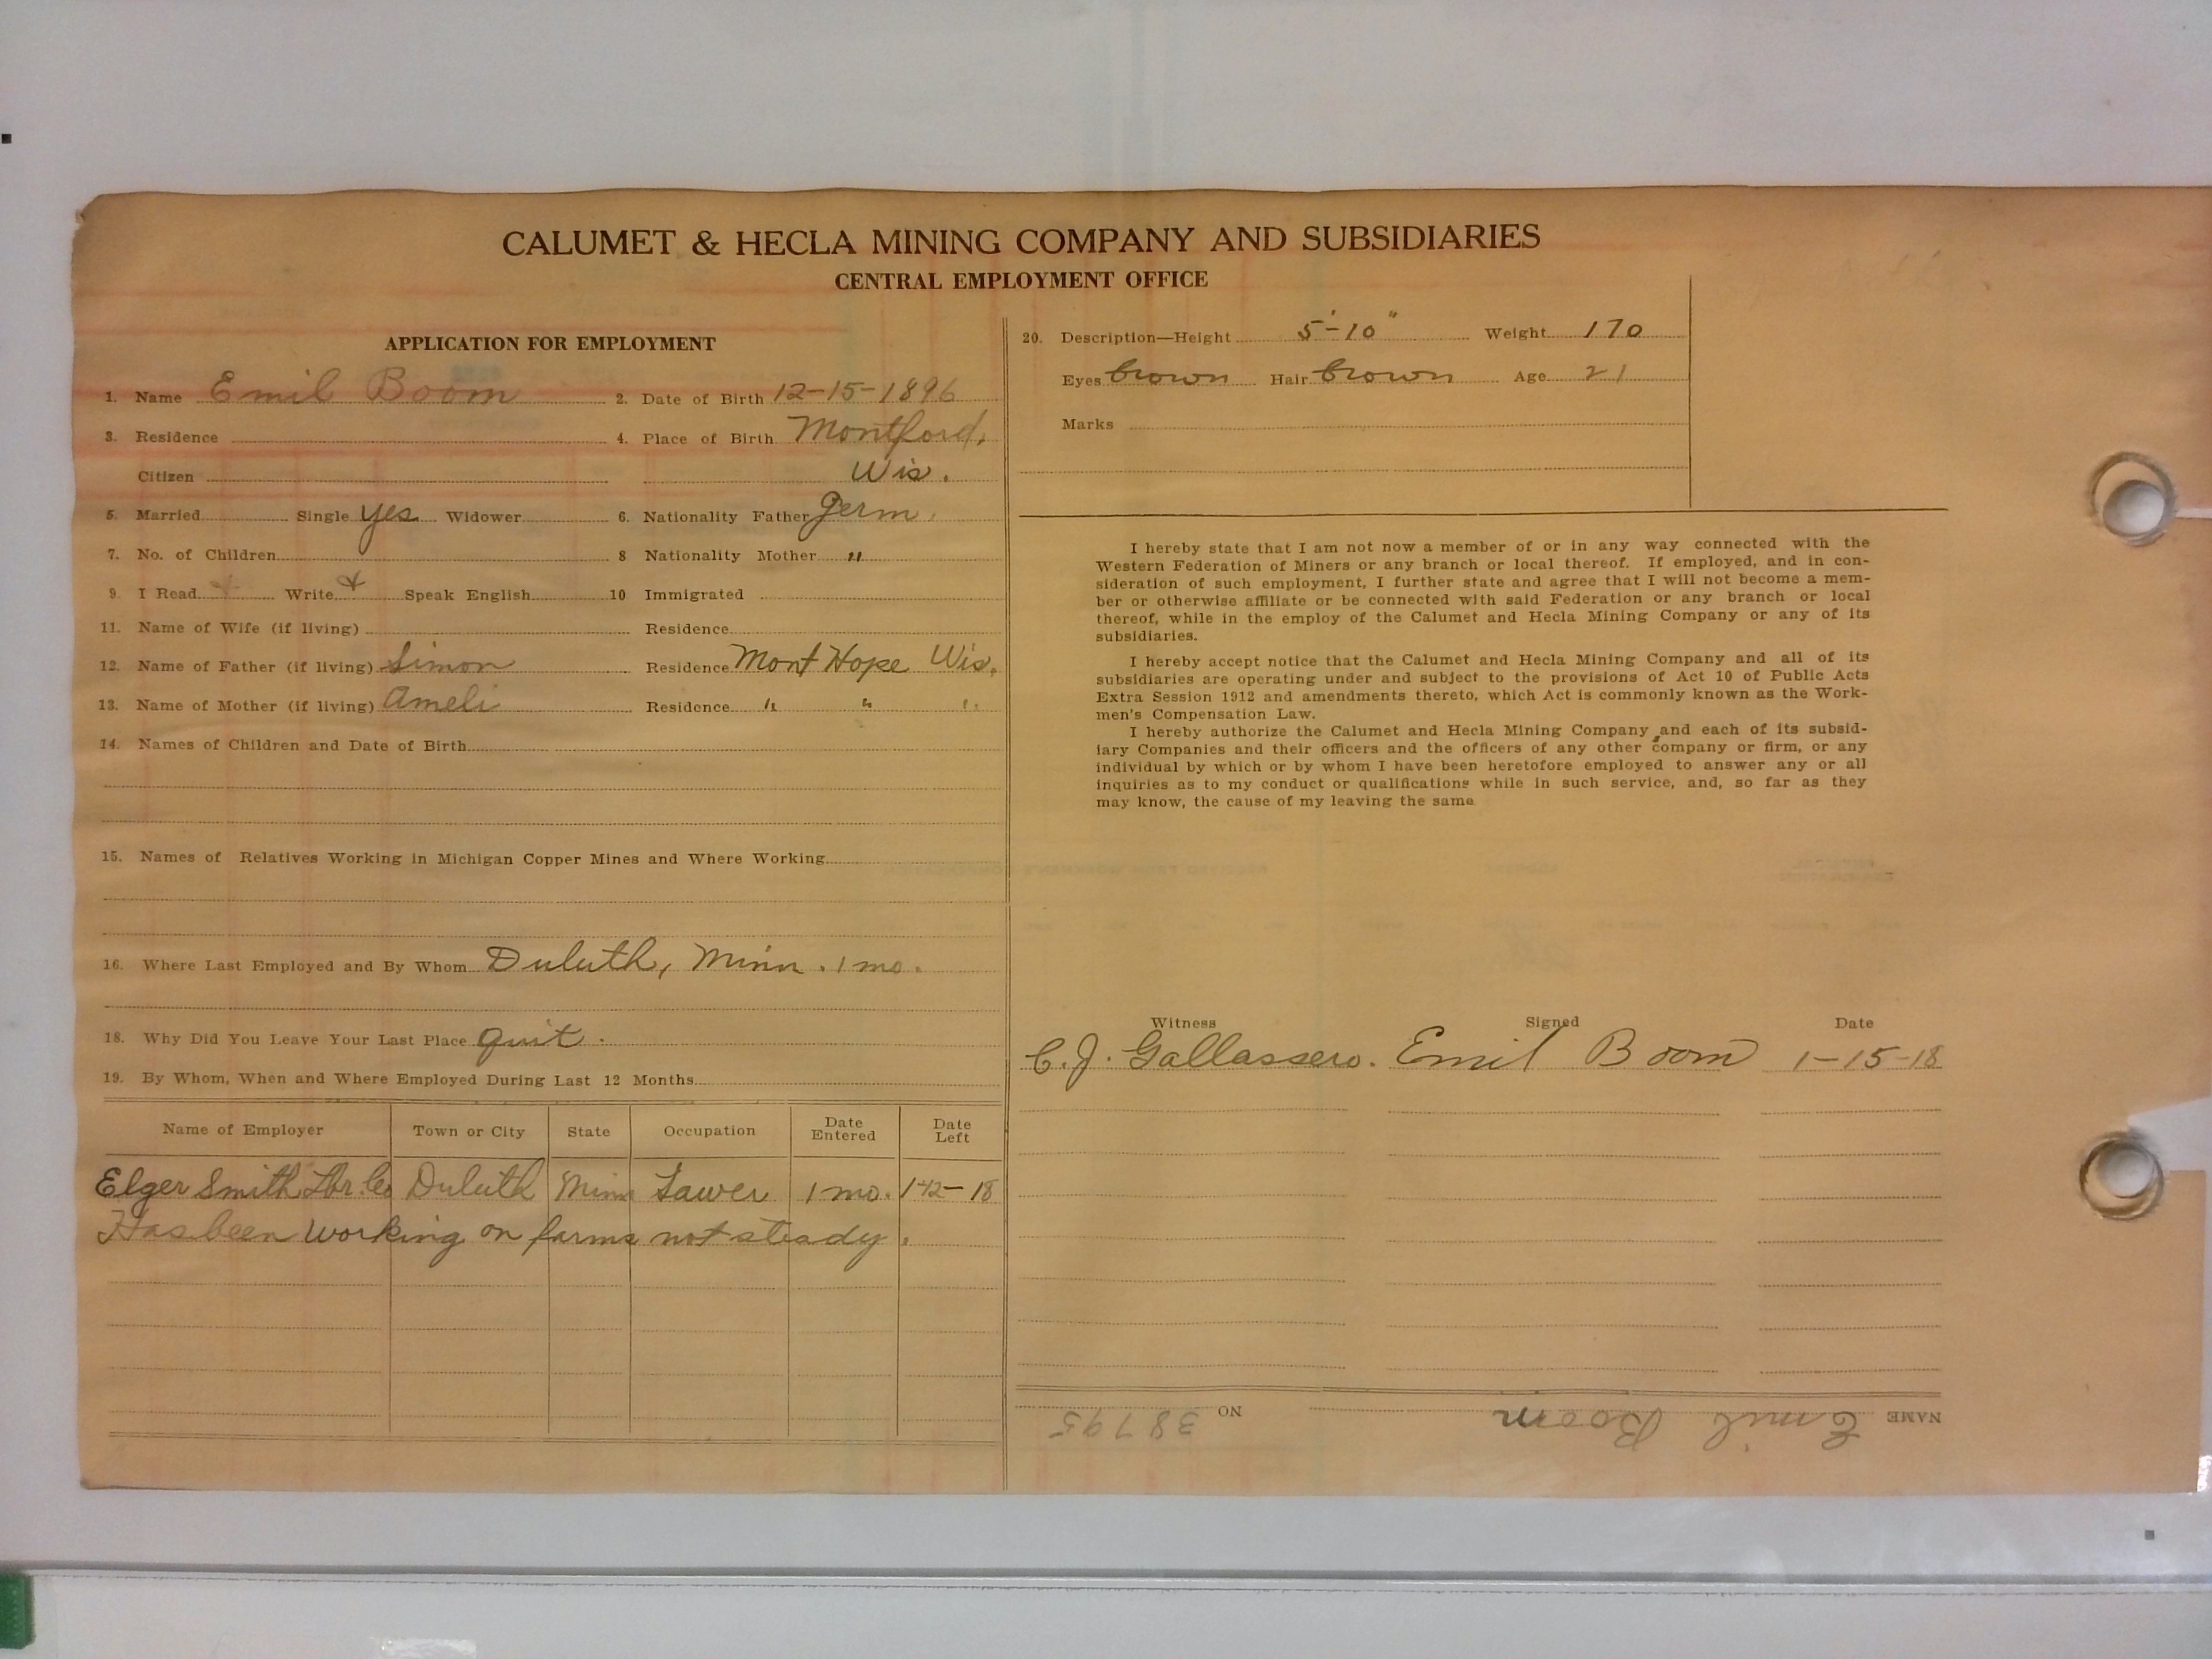 CALUMET & HECLA MINING COMPANY AND SUBSIDIARIES
CENTRAL EMPLOYMENT OFFICE
APPLICATION FOR EMPLOYMENT
1. Name Emil Boom 2. Date of Birth 12-15-1896
3. Residence 4. Place of Birth Montford,
Citizen Wis.
5. Married Single yes Widower 6. Nationality Father Germ.
7. No. of Children 8 Nationality Mother "
9. I Read + Write + Speak English 10 Immigrated
11. Name of Wife (if living) Residence
12. Name of Father (if living) Simon Residence Mont Hope Wis.
13. Name of Mother (if living) Ameli Residence " " "
14. Names of Children and Date of Birth
15. Names of Relatives Working in Michigan Copper Mines and Where Working
16. Where Last Employed and By Whom Duluth, Minn. 1 mo.
18. Why Did You Leave Your Last Place quit.
19. By Whom, When and Where Employed During Last 12 Months
Name of Employer Town or City State Occupation Date Entered Date Left
Elger Smith Lbr. Co Duluth Minn Sawer 1 mo. 1-12-18
Has been working on farms not steady.
20. Description—Height 5'-10" Weight 170
Eyes brown Hair brown Age 21
Marks
I hereby state that I am not now a member of or in any way connected with the
Western Federation of Miners or any branch or local thereof. If employed, and in con-
sideration of such employment, I further state and agree that I will not become a mem-
ber or otherwise affiliate or be connected with said Federation or any branch or local
thereof, while in the employ of the Calumet and Hecla Mining Company or any of its
subsidiaries.
I hereby accept notice that the Calumet and Hecla Mining Company and all of its
subsidiaries are operating under and subject to the provisions of Act 10 of Public Acts
Extra Session 1912 and amendments thereto, which Act is commonly known as the Work-
men's Compensation Law.
I hereby authorize the Calumet and Hecla Mining Company and each of its subsid-
iary Companies and their officers and the officers of any other company or firm, or any
individual by which or by whom I have been heretofore employed to answer any or all
inquiries as to my conduct or qualifications while in such service, and, so far as they
may know, the cause of my leaving the same
Witness Signed Date
C. J. Gallassero. Emil Boom 1-15-18
NAME Emil Boom NO 38795